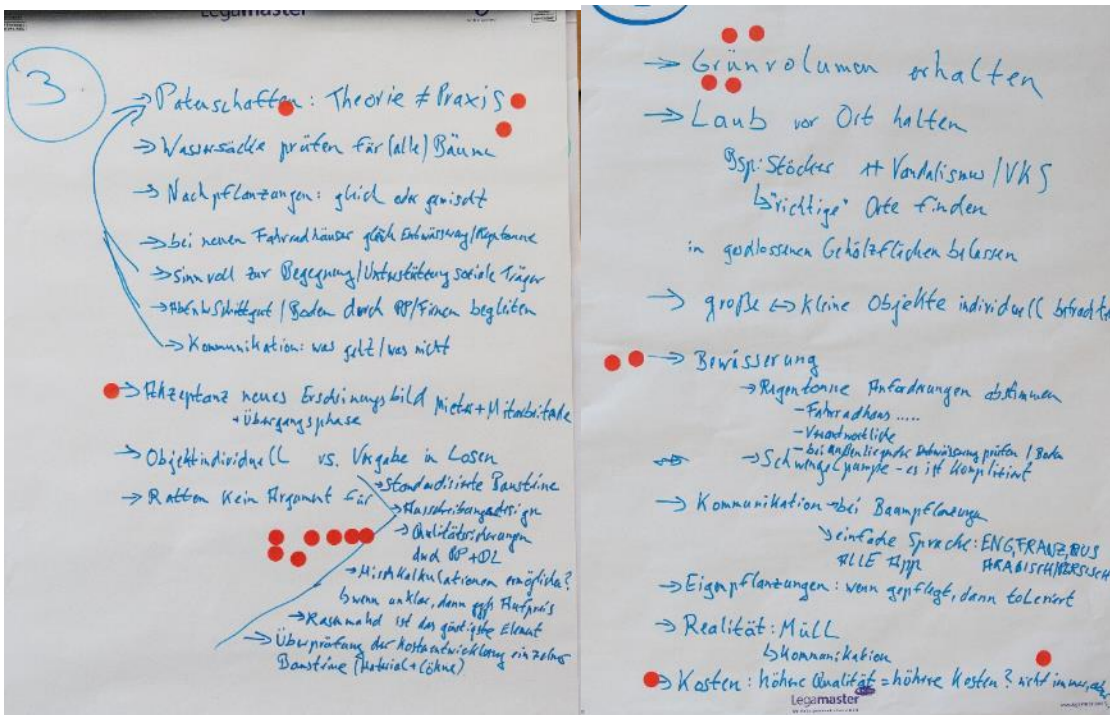 Legamaster
3
→ Patenschaften: Theorie ≠ Praxis
→ Wassersäcke prüfen für (alle) Bäume
→ Nachpflanzungen: gleich oder gemischt
→ bei neuen Fahrradhäuser gleich Entwässerung/Regentonne
→ sinnvoll zur Begegnung/Unterstützung soziale Träger
→ Schnittgut / Boden durch /Firmen begleiten
→ Kommunikation: was geht/was nicht
→ Akzeptanz neues Erscheinungsbild Mieter + Mitarbeitende
+ Übergangsphase
→ Objektindividuell vs. Vorgabe in Losen
→ Standardisierte Bausteine
→ Ratten kein Argument für
→ Ausschreibungsdesign
→ Qualitätssicherungen
durch + DL
→ Mischkalkulationen ermöglichen?
↳ wenn unklar, dann ggfs Aufpreis
→ Rasenmahd ist das günstigste Element
→ Überprüfung der Kostenentwicklung einzelner
Bausteine (Material + Löhne)
→ Grünvolumen erhalten
→ Laub vor Ort halten
Bsp: Stöcker ↔ Vandalismus / VKS
↳ "richtige" Orte finden
in geschlossenen Gehölzflächen belassen
→ große ↔ kleine Objekte individuell
→ Bewässerung
→ Regentonne Anforderungen abstimmen
- Fahrradhaus .....
- Verantwortliche
- bei außenliegender Entwässerung prüfen / Boden
→ Schwengelpumpe - es ist kompliziert
→ Kommunikation → bei Baumpflanzungen
↘ einfache Sprache: ENG, FRANZ, RUS
ALLE App ARABISCH/PERSISCH
→ Eigenpflanzungen: wenn gepflegt, dann toleriert
→ Realität: Müll
↳ Kommunikation
→ Kosten: höhere Qualität = höhere Kosten? nicht immer,
Legamaster